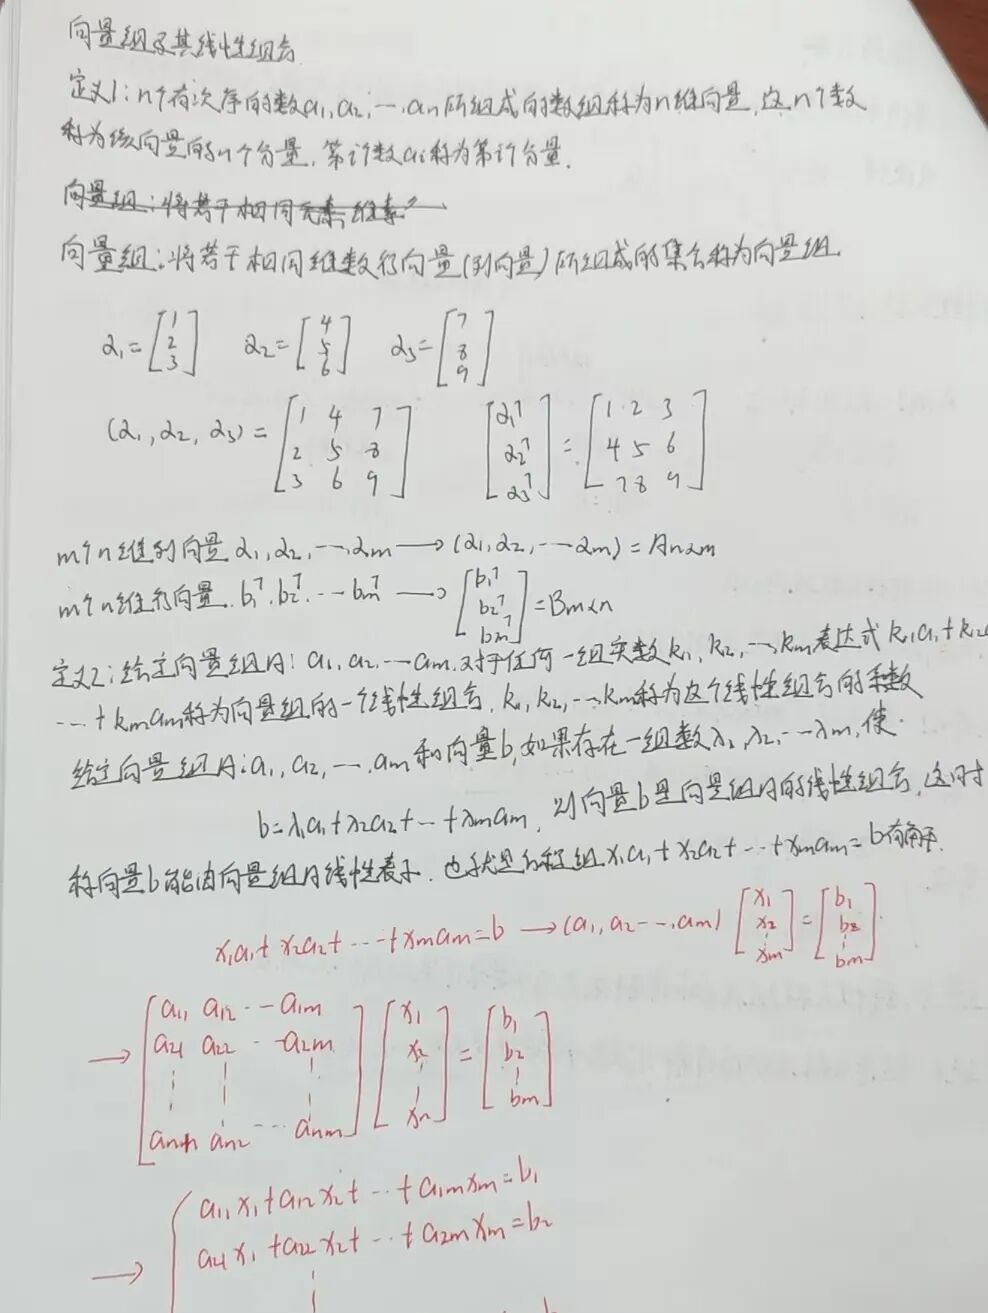 向量组及其线性组合
定义1:n个有次序的数a₁,a₂,…,aₙ所组成的数组称为n维向量,这n个数
称为该向量的n个分量,第i个数aᵢ称为第i个分量.
向量组:将若干相同元素,维素
向量组:将若干相同维数行向量(列向量)所组成的集合称为向量组
α₁=[1 2 3] α₂=[4 5 6] α₃=[7 8 9]
(α₁,α₂,α₃)=[1 4 7; 2 5 8; 3 6 9] [α₁ᵀ; α₂ᵀ; α₃ᵀ]=[1 2 3; 4 5 6; 7 8 9]
m个n维列向量α₁,α₂,…,αm→(α₁,α₂,…αm)=An×m
m个n维行向量.b₁ᵀ,b₂ᵀ,…bmᵀ→[b₁ᵀ; b₂ᵀ; bmᵀ]=Bm×n
定义2:给定向量组A:a₁,a₂,…am,对于任何一组实数k₁,k₂,…,km表达式k₁a₁+k₂
…+kmam称为向量组的一个线性组合,k₁,k₂,…,km称为这个线性组合的系数
给定向量组A:a₁,a₂,…,am和向量b,如果存在一组数λ₁,λ₂,…λm,使
b=λ₁a₁+λ₂a₂+…+λmam,则向量b是向量组A的线性组合,这时
称向量b能由向量组A线性表示.也就是方程组x₁a₁+x₂a₂+…+xmam=b有解.
x₁a₁+x₂a₂+…+xmam=b→(a₁,a₂…,am)[x₁; x₂; ⋮; xm]=[b₁; b₂; ⋮; bm]
→[a₁₁ a₁₂ … a₁m; a₂₁ a₂₂ … a₂m; ⋮ ⋮ ⋮; an₁ an₂ … anm][x₁; x₂; ⋮; xn]=[b₁; b₂; ⋮; bm]
a₁₁x₁+a₁₂x₂+…+a₁mxm=b₁
→ a₂₁x₁+a₂₂x₂+…+a₂mxm=b₂